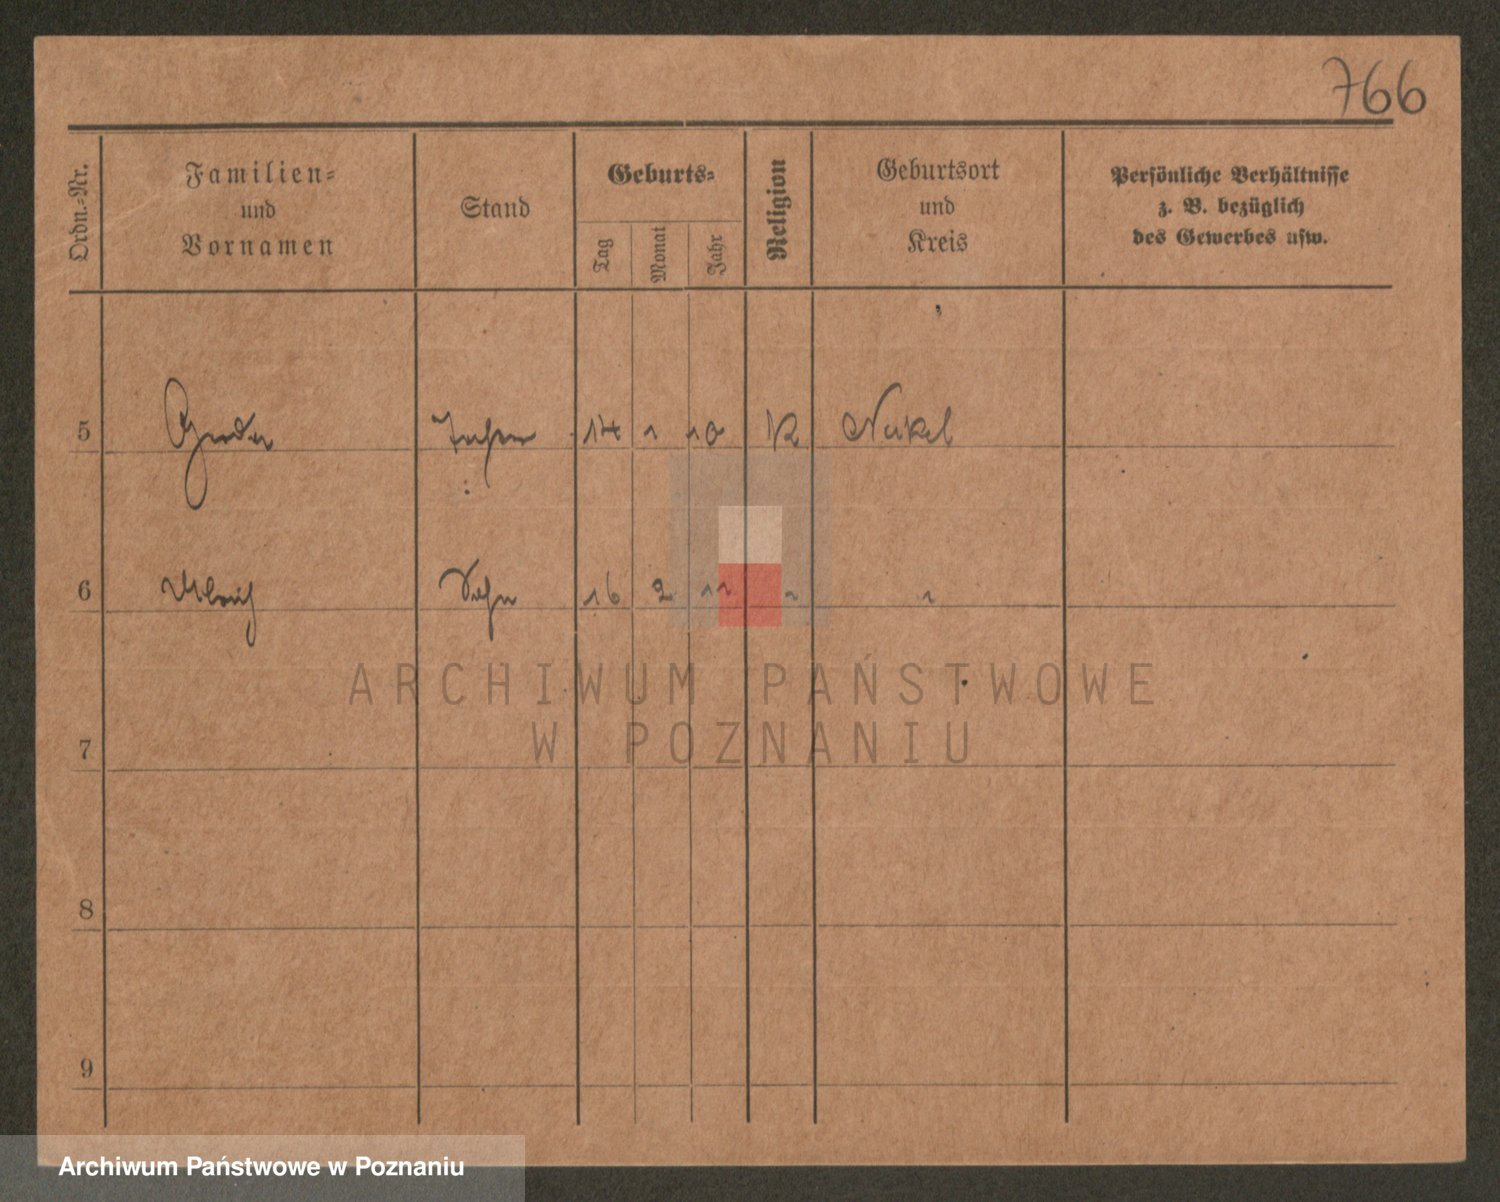 766
Ordn.-Nr.
Familien-
und
Vornamen
Stand
Geburts-
Tag
Monat
Jahr
Religion
Geburtsort
und
Kreis
Persönliche Verhältnisse
z. B. bezüglich
des Gewerbes usw.
5 14 1 10 K Nakel
6 Ulrich Sohn 16 2 11 " "
ARCHIWUM PAŃSTWOWE
W POZNANIU
7
8
9
Archiwum Państwowe w Poznaniu